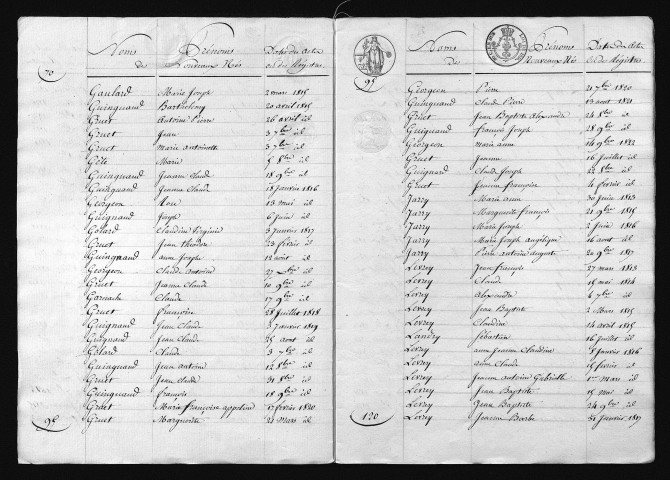 Noms Prénoms Date des Actes
des Nouveaux Nés et des Registres
70
Gaulard Marie Joseph 2 mai 1815
Guingnand Barthelemy 20 avril 1815
Gruet Antoine Pierre 26 avril id
Gruet Jean 3 7bre id
Gruet Marie antoinette 3 7bre id
Marie 5 8bre id
Guingnand Jeanne Claude 18 9bre id
Guingnand Jeanne Claude 18 janvier 1816
Georgeon Rose 13 mai id
Guignand Joseph 6 juin id
Golard Claudine Virginie 3 janvier 1817
Gruet Jean théodore 23 fevrier id
Guingnand anne Joseph 12 aout id
Georgeon Claude Antoine 27 id
Gruet Jeanne Claude 10 9bre id
Garnache Claude 17 9bre id
Gruet Françoise 28 juillet 1818
Guignand Jean Claude 27 janvier 1819
Guignand Jean Claude 25 aout id
Golard Claude 3 7bre id
Guingnand Jean antoine 12 8bre id
Gruet Jean Claude 31 8bre id
Guingnand François 18 9bre id
Gruet Marie françoise appoline 17 fevrier 1820
Gruet Marguerite 21 mars id
95
Noms Prénoms Date des Actes
des Nouveaux Nés et des Registres
95
Georgeon Pierre 21 7bre 1820
Guingnand Claude Pierre 13 aout 1821
Gruet Jean Baptiste Alexandre 24 8bre id
Guignand François Joseph 28 9bre id
Georgeon Marie anne 14 9bre 1822
Gruet Jeanne 16 juillet id
Guignard Claude Joseph 22 8bre id
Gruet Jeanne françoise 4 fevrier id
Jarry Marie anne 30 juin 1813
Jarry Marguerite françoise 21 9bre 1815
Jarry Marie Joseph 2 juin 1816
Jarry Marie Joseph angélique 16 aout id
Jarry Pierre antoine auguste 20 9bre 1817
Levrey Jean françois 27 mars 1813
Levrey Claude 15 mai 1814
Levrey Alexandre 6 7bre id
Levrey Jean Baptiste 2 Mars 1815
Levrey Claudine 14 avril 1815
Landry Sébastien 16 juillet id
Levrey anne Jeanne Claudine 5 janvier 1816
Levrey Claude 15 fevrier id
Levrey Jeanne antoine Gabrielle 1er mars id
Levrey Jean Baptiste 15 mai id
Levrey Jean Baptiste 24 9bre id
Levrey Jeanne Barbe 31 janvier 1817
120